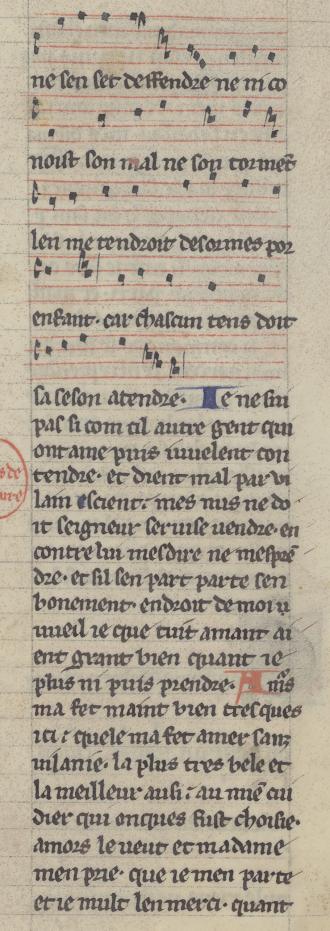 ne sen set deffendre ne ni co
noist son mal ne son tormēt
len me tendroit desormes por
enfant· car chascun tens doit
sa seson atendre· Ie ne sui
pas si com cil autre gent qui
ont ame puis uuelent con
tendre· et dient mal par vi
lain escient· mes nus ne do
it seigneur seruise uendre· en
contre lui mesdire ne mespre
dre· et sil sen part parte sen
bonement· endroit de moi
uueil ie que tuit amant ai
ent grant bien quant ie
plus ni puis prendre· Amōs
ma fet maint bien tresques
ici· quele ma fet amer sanz
uilanie· la plus tres bele et
la meilleur ausi· au miē cui
dier qui onques fust choisie·
amors le ueut et ma dame
men prie· que ie men parte
et ie mult len merci· quant